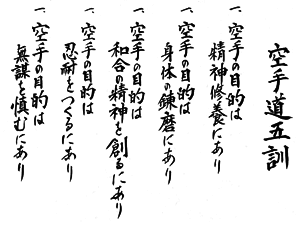 空手道五訓
一、空手の目的は
精神修養にあり
一、空手の目的は
身体の錬磨にあり
一、空手の目的は
和合の精神を創るにあり
一、空手の目的は
忍耐をつくるにあり
一、空手の目的は
無謀を慎むにあり